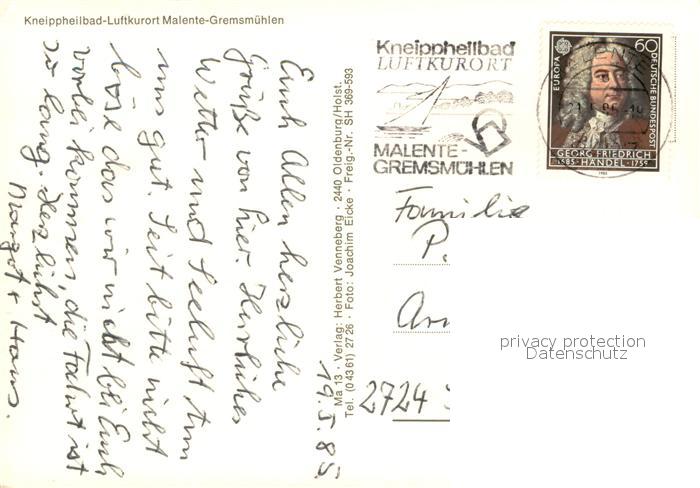 Kneippheilbad-Luftkurort Malente-Gremsmühlen
19.5.85.
Euch Allen herzliche
Grüße von hier. Herrliches
Wetter und Seeluft tun
uns gut. Seit bitte nicht
böse das wir nicht bei Euch
vorbei kommen, die Fahrt ist
zu lang. Herzlichst
Margot + Hans.
Ma 13 · Verlag: Herbert Venneberg · 2440 Oldenburg/Holst.
Tel. (0 43 61) 27 26 · Foto: Joachim Eicke · Freig.-Nr. SH 369-593
Kneippheilbad
LUFTKURORT
MALENTE-
GREMSMÜHLEN
EUROPA
60
DEUTSCHE BUNDESPOST
GEORG FRIEDRICH
1685 HÄNDEL 1759
1985
Familie
P.
2724
privacy protection
Datenschutz